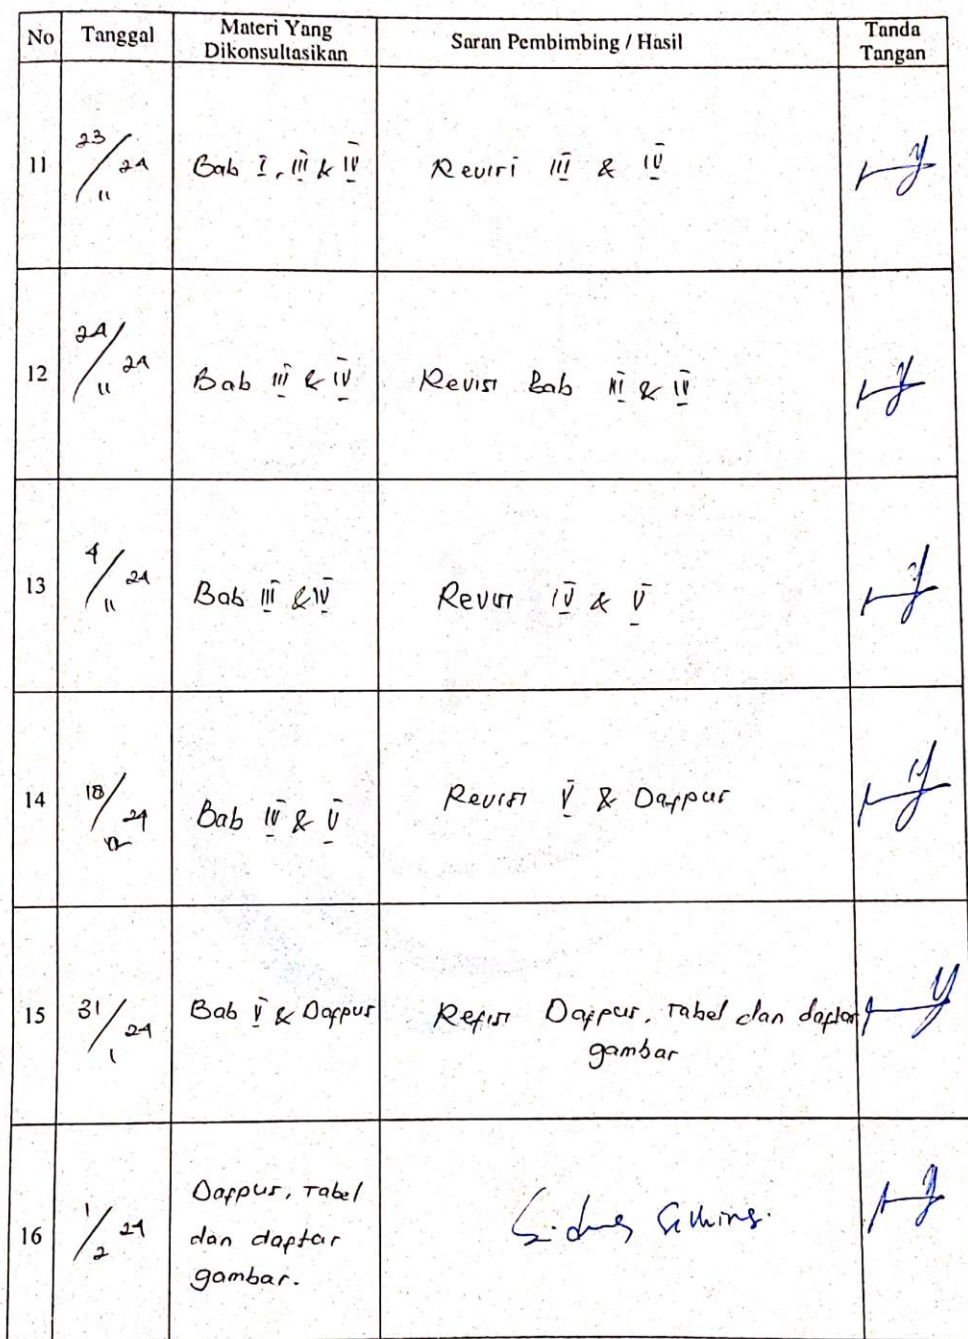 No Tanggal Materi Yang Dikonsultasikan Saran Pembimbing / Hasil Tanda Tangan
11 23/11 24 Bab I, III & IV Revisi III & IV
12 24/11 24 Bab III & IV Revisi Bab III & IV
13 4/11 24 Bab III & IV Revisi IV & V
14 18/12 24 Bab IV & V Revisi V & Dafpus
15 31/1 24 Bab V & Dafpus Refisi Dafpus, Tabel dan daftar
gambar
16 1/2 24 Dafpus, Tabel
dan daftar
gambar.